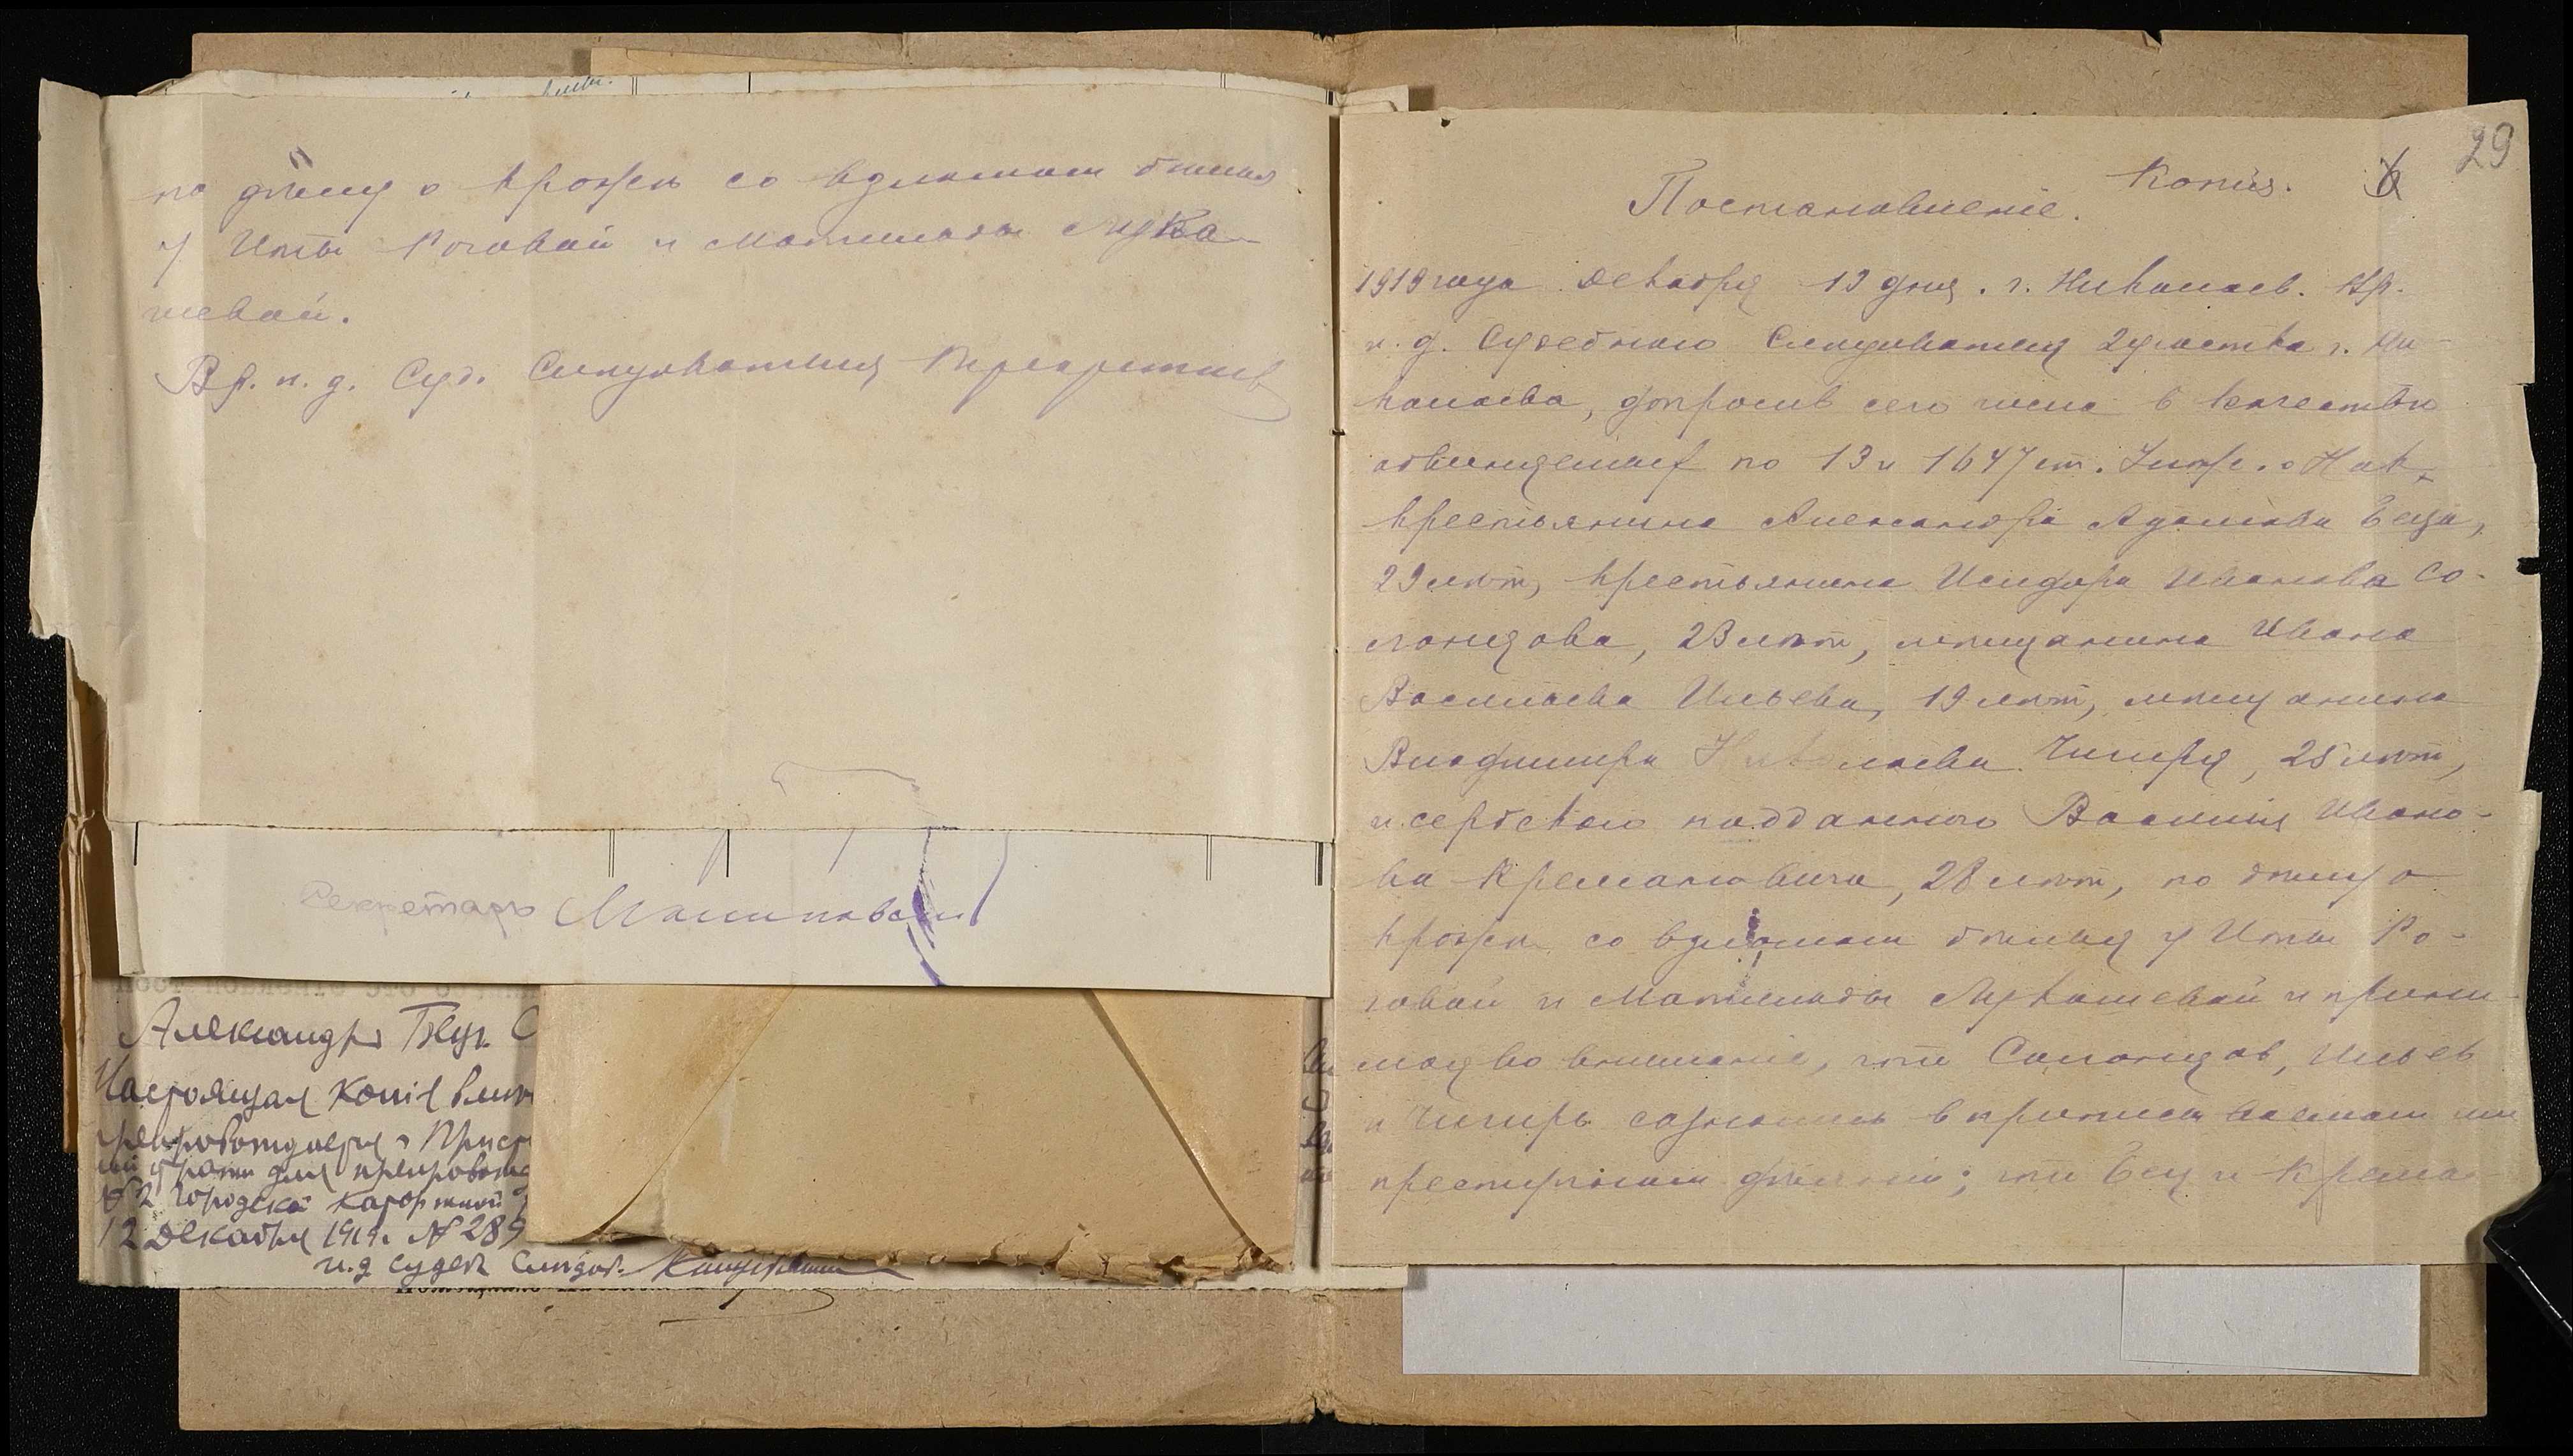 по дѣлу о кражѣ со взломом бѣлья
у Иты Роговой и Матильды Лука-
шевой.
Вр. и. д. Суд. Слѣдователя
Секретарь
Александръ Бец. С
Настоящая копія
препровождается
для препровожд
№ 2 Городской каторжной
12 Декабря 1919 № 289
и.д Судеб. Слѣдов.
29
Копія.
Постановленіе.
1919 года Декабря 12 дня. г. Николаев. Вр.
и. д. Судебного Слѣдователя 2 участка г. Ни-
колаева, допросив сего числа в качествѣ
обвиняемых по 13 и 1647 ст. Улож. о Нак.
крестьянина Александра Адамова Беца,
29 лѣт, крестьянина Исидора Иванова Со-
лонцова, 23 лѣт, мѣщанина Ивана
Васильева Ильева, 19 лѣт, мѣщанина
Владимира Николаева Чигиря, 25 лѣт,
и сербского подданного Василия Ивано-
ва Кремановича, 28 лѣт, по дѣлу о
кражѣ со взломом бѣлья у Иты Ро-
говой и Матильды Лукашевой и прини-
мая во вниманіе, что Солонцов, Ильев
и Чигирь сознались в приписываемом им
преступном дѣяніи; что Бец и Крема-